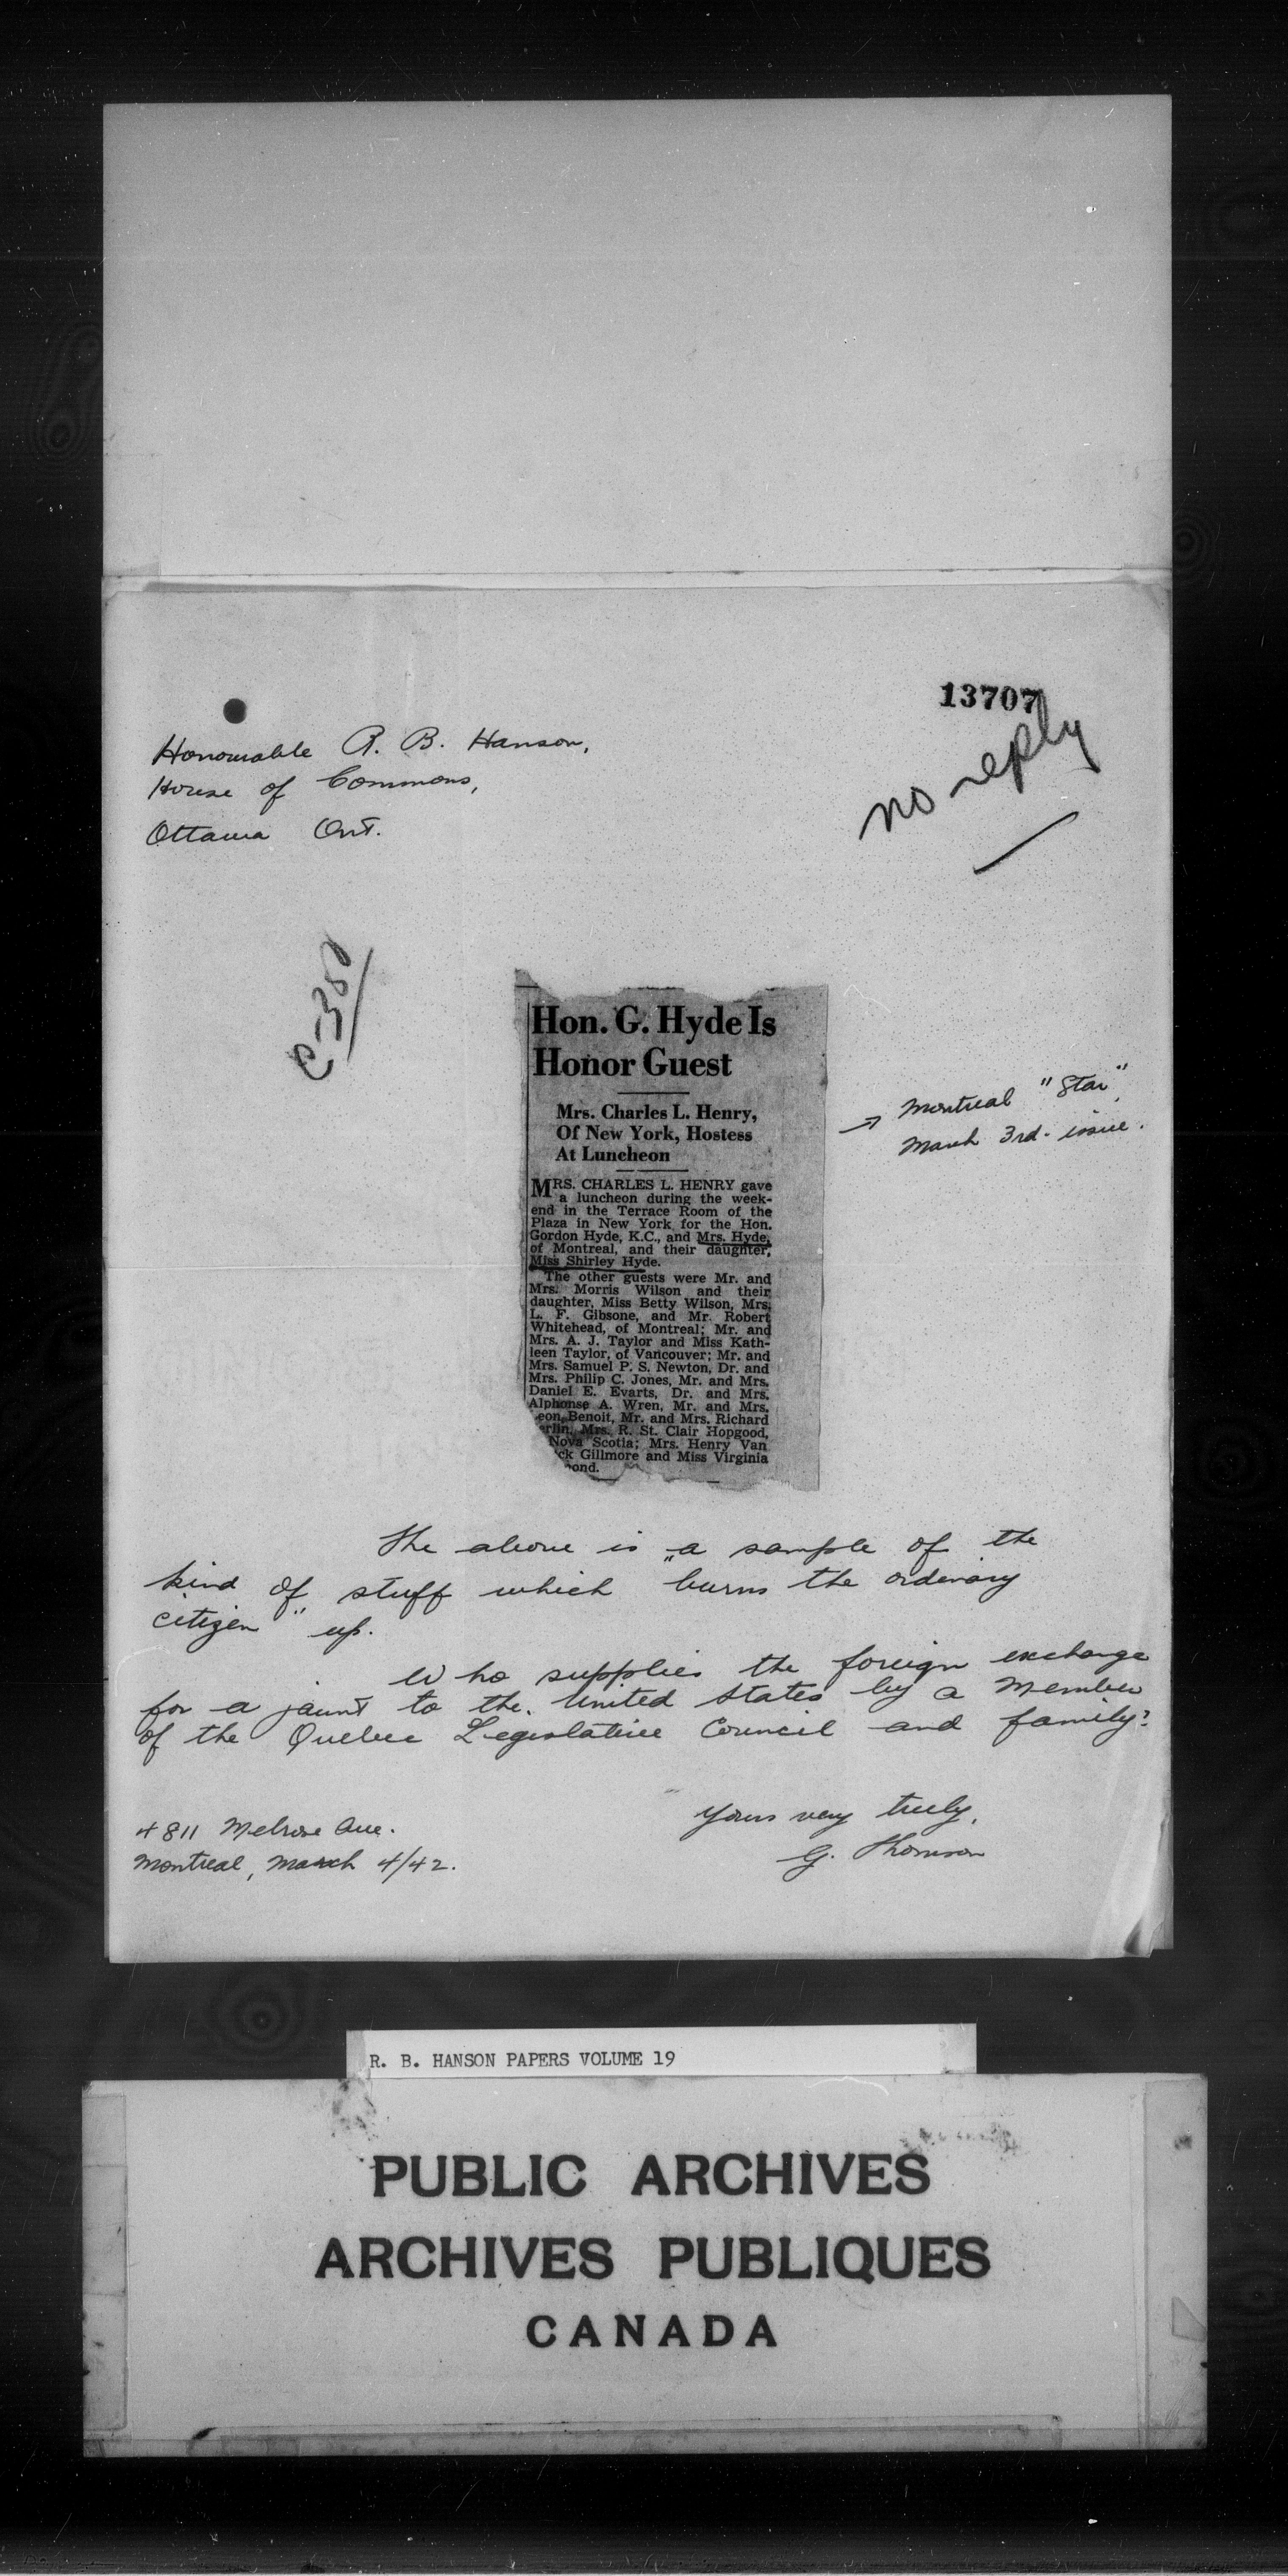 13707
no reply
Honourable R. B. Hanson,
House of Commons,
Ottawa Ont.
C-380
Hon. G. Hyde Is
Honor Guest
Mrs. Charles L. Henry,
Of New York, Hostess
At Luncheon
MRS. CHARLES L. HENRY gave
a luncheon during the week-
end in the Terrace Room of the
Plaza in New York for the Hon.
Gordon Hyde, K.C., and Mrs. Hyde,
of Montreal, and their daughter,
Miss Shirley Hyde.
The other guests were Mr. and
Mrs. Morris Wilson and their
daughter, Miss Betty Wilson, Mrs.
L. F. Gibsone, and Mr. Robert
Whitehead, of Montreal; Mr. and
Mrs. A. J. Taylor and Miss Kath-
leen Taylor, of Vancouver; Mr. and
Mrs. Samuel P. S. Newton, Dr. and
Mrs. Philip C. Jones, Mr. and Mrs.
Daniel E. Evarts, Dr. and Mrs.
Alphonse A. Wren, Mr. and Mrs.
eon Benoit, Mr. and Mrs. Richard
erlin, Mrs. R. St. Clair Hopgood,
Nova Scotia; Mrs. Henry Van
ck Gillmore and Miss Virginia
ond.
→ Montreal "Star",
March 3rd. issue.
The above is a sample of the
kind of stuff which "burns the ordinary
citizen" up.
Who supplies the foreign exchange
for a jaunt to the United States by a Member
of the Quebec Legislative Council and family?
Yours very truly,
G. Thomson
4811 Melrose Ave.
Montreal, March 4/42.
R. B. HANSON PAPERS VOLUME 19
PUBLIC ARCHIVES
ARCHIVES PUBLIQUES
CANADA